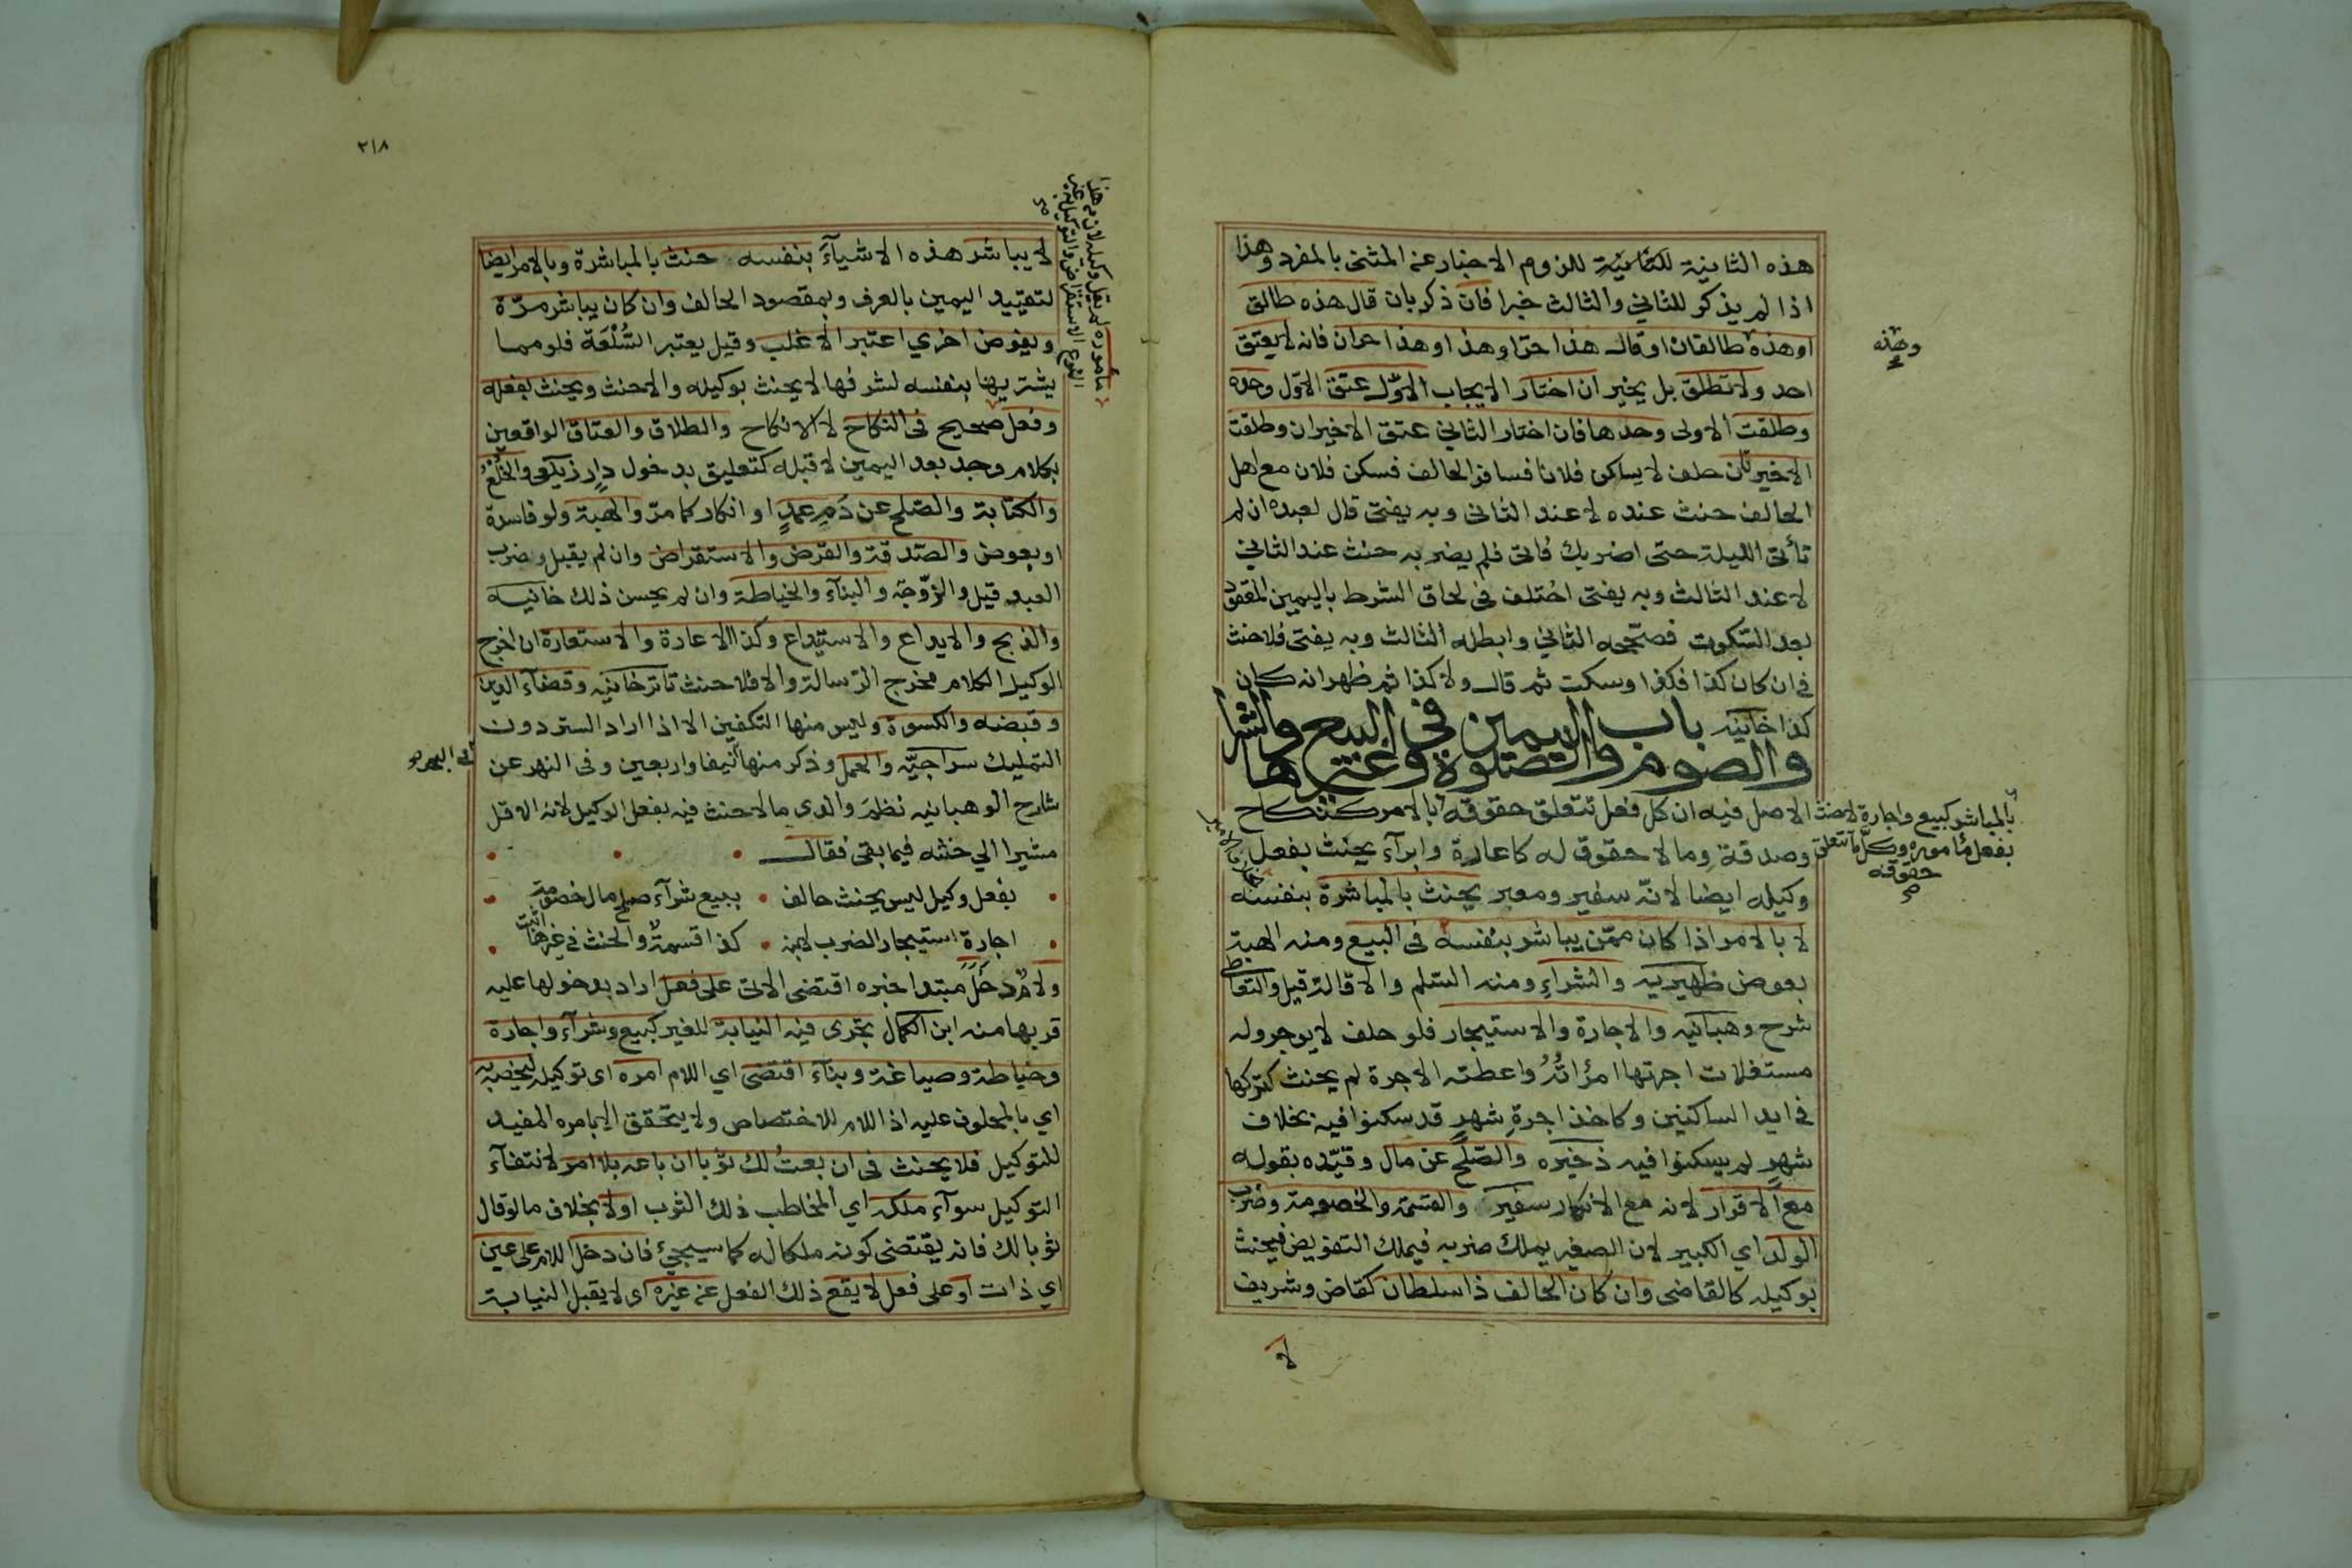 هذه الثانية للثانية للزوم الاخبار عن المثنى بالمفرد وهذا
اذا لم يذكر للثاني والثالث خبرا فان ذكر بان قال هذه طالق
اوهذه طالقان او قال هذا حر او هذا وهذا حران فانه لا يعتق
وهذه
احد ولا تطلق بل يخير ان اختار الايجاب الاول عتق الاول وحده
وطلقت الاولى وحدها فان اختار الثاني عتق الاخيران وطلقت
الاخيرتان حلف لا يساكن فلانا فسافر الحالف فسكن فلان مع اهل
الحالف حنث عنده لا عند الثاني وبه يفتى قال لعبده ان لم
تأتى الليلة حتى اضربك فاتى فلم يضربه حنث عند الثاني
لا عند الثالث وبه يفتى اختلف في لحاق الشرط باليمين المعقود
بعد السكوت فصححه الثاني وابطله الثالث وبه يفتى فلا حنث
في ان كان كذا فكذا وسكت ثم قال ولا كذا ثم ظهر انه كان
كذا خانيه باب اليمين في البيع والشرا
والصوم والصلوة وغيرها
الاصل فيه ان كل فعل تتعلق حقوقه بالامر كنكاح
بالمباشر كبيع واجارة لا حنث
بفعل مأموره وكل ما تتعلق
حقوقه
صح
وصدقة وما لا حقوق له كاعارة وابرآء يحنث بفعل
وكيله ايضا لانه سفير ومعبر يحنث بالمباشرة بنفسه
لا بالامر اذا كان ممن يباشر بنفسه في البيع ومنه الهبة
بعوض ظهيريه والشراء ومنه السلم والاقالة قيل والتعاطي
شرح وهبانيه والاجارة والاستيجار فلو حلف لا يوجر وله
مستغلات اجرتها امرأتُهُ واعطته الاجرة لم يحنث كتركها
في ايد الساكنين وكاخذ اجرة شهر قد سكنوا فيه بخلاف
شهرٍ لم يسكنوا فيه ذخيره والصلح عن مال وقيده بقوله
مع الاقرار لانه مع الانكار سفير والقسمة والخصومة وضرب
الولد اي الكبير لان الصغير يملك ضربه فيملك التفويض فيحنث
بوكيله كالقاضي وان كان الحالف ذا سلطان كقاض وشريف
لا
٢١٨
لا يباشر هذه الاشيآءَ بنفسه حنث بالمباشرة وبالامر ايضا
لتقييد اليمين بالعرف وبمقصود الحالف وان كان يباشر مرة
ويفوض اخري اعتبر الاغلب وقيل يعتبر السُّلْعَة فلو مما
يشتريها بنفسه لشرفها لا يحنث بوكيله والاحنث ويحنث بفعله
وفعل مأموره لم يقل وكيله لان من هذا
النوع الاستقراض والتوكيل به غير
صحيح في النكاح لا الانكاح والطلاق والعتاق الواقعين
بكلام وجد بعد اليمين لا قبله كتعليق بدخول دارٍ زيلعى والخُلْعُ
والكتابة والصلح عن دَمِ عمدٍ او انكار كما مرّ والهبة ولو فاسدة
او بعوض والصدقة والقرض والاستقراض وان لم يقبل وضرب
العبد قيل والزوجة والبنآء والخياطة وان لم يحسن ذلك خانيه
والذبح والايداع والاستيداع وكذا الاعارة والاستعارة ان اخرج
الوكيل الكلام مخرج الرسالة والا فلا حنث تاترخانيه وقضآء الدين
وقبضه والكسوة وليس منها التكفين الا اذا اراد الستر دون
التمليك سراجيّه والحمل وذكر منها في البحر نيفا واربعين وفي النهر عن
شارح الوهبانيه نظمَ والدى ما لا حنث فيه بفعل الوكيل لانه الاقل
مشيرا الي حنثه فيما بقى فقال
بفعل وكيل ليس يحنث حالف • ببيع شرآء صلح مال خصومة
اجارة استيجار الضرب لابنه • كذا قسمة والحنث في غيرها اثبت
ولام دَخَلَ مبتدا خبره اقتضى الاتى على فعل اراد بدخولها عليه
قربها منه ابن الكمال تجرى فيه النيابة للغير كبيع وشرآء واجارة
وخياطة وصياغة وبنآء اقتضى اي اللام امره اى توكيله ليخصه به
اي بالمحلوف عليه اذ اللام للاختصاص ولا يتحقق الا بامره المفيد
للتوكيل فلا يحنث في ان بعتُ لك ثوبا ان باعه بلا امر لانتفآء
التوكيل سوآء ملكه اي المخاطب ذلك الثوب اولا بخلاف ما لو قال
ثوبا لك فانه يقتضى كونه ملكا له كما سيجئ فان دخل اللام على عين
اي ذات او على فعل لا يقع ذلك الفعل عن غيره اى لا يقبل النيابة